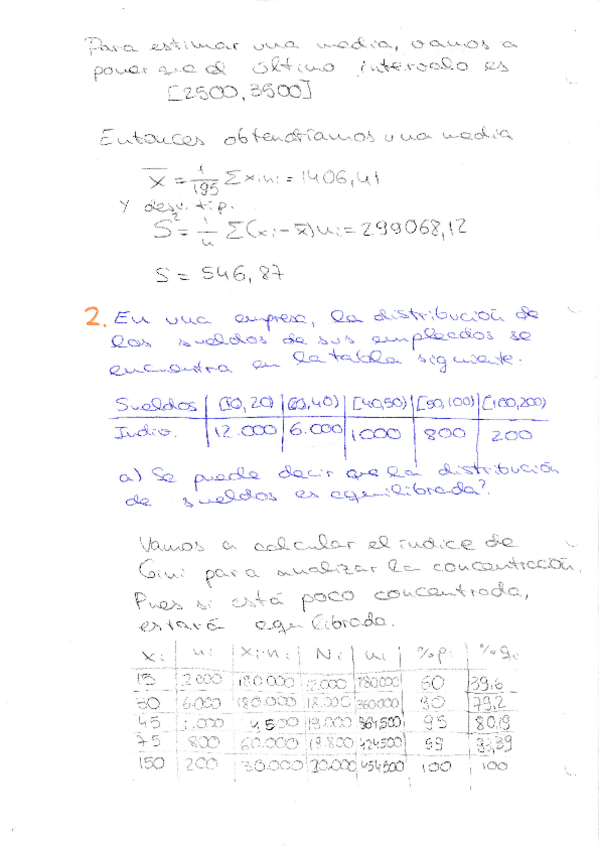 Para estimar una media, vamos a
poner que el último intervalo es
[2500, 3500]
Entonces obtendríamos una media
x̄ = 1/195 Σ xᵢnᵢ = 1406,41
Y desv. tip.
S² = 1/n Σ(xᵢ - x̄)nᵢ = 299068,12
S = 546,87
2. En una empresa, la distribución de
los sueldos de sus empleados se
encuentra en la tabla siguiente.
Sueldos | [10,20) | [20,40) | [40,50) | [50,100) | [100,200)
Indiv. | 12.000 | 6.000 | 1000 | 800 | 200
a) Se puede decir que la distribución
de sueldos es equilibrada?
Vamos a calcular el índice de
Gini para analizar la concentración.
Pues si está poco concentrada,
estará equilibrada.
xᵢ | nᵢ | xᵢ·nᵢ | Nᵢ | uᵢ | %pᵢ | %qᵢ
15 | 2.000 | 180.000 | 2.000 | 180000 | 60 | 39,6
30 | 6.000 | 180.000 | 18.000 | 360000 | 90 | 79,2
45 | 1.000 | 4,500 | 19.000 | 364,500 | 95 | 80,19
75 | 800 | 60.000 | 19.800 | 424500 | 99 | 93,39
150 | 200 | 30.000 | 20.000 | 454500 | 100 | 100